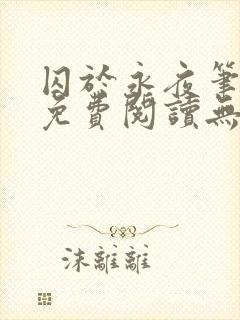 囚於永夜筆
免費閱讀無
沫離離